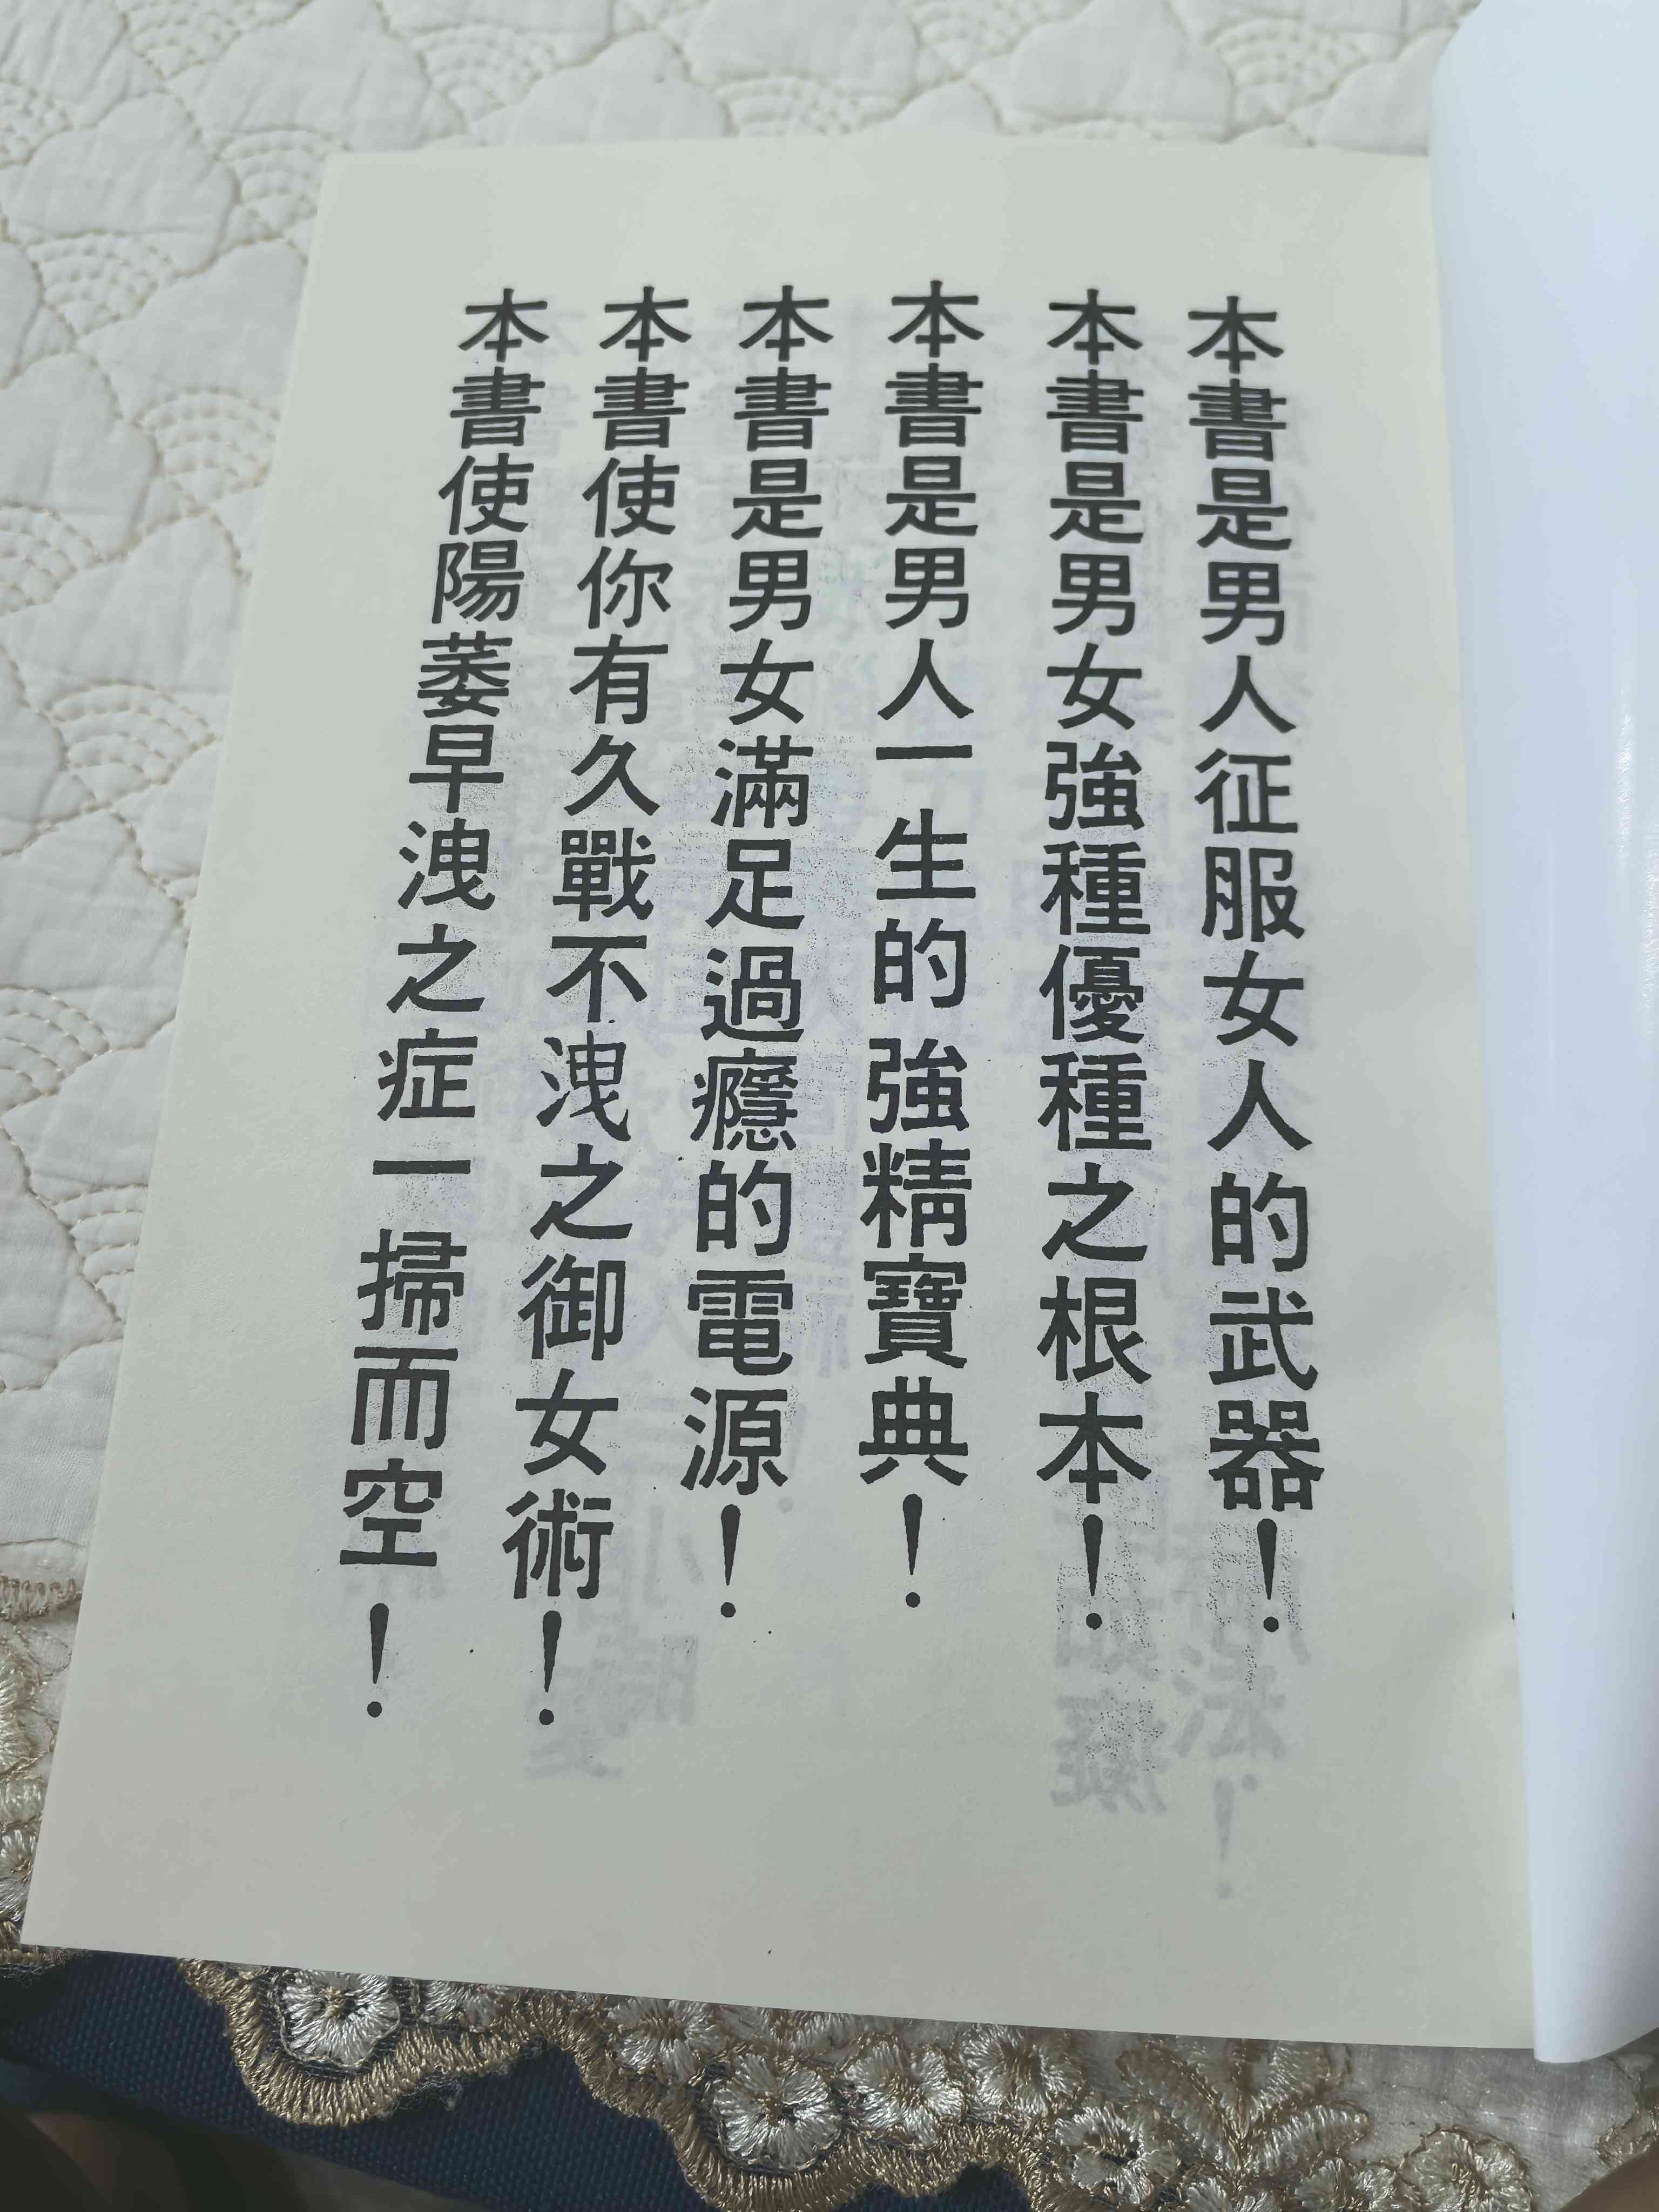 本書是男人征服女人的武器！
本書是男女強種優種之根本！
本書是男人一生的強精寶典！
本書是男女滿足過癮的電源！
本書使你有久戰不洩之御女術！
本書使陽萎早洩之症一掃而空！